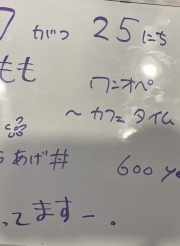 7がつ 25にち
もも
ワニオペ
〜カフェ タイム
あげ#
600 y
ってます〜.